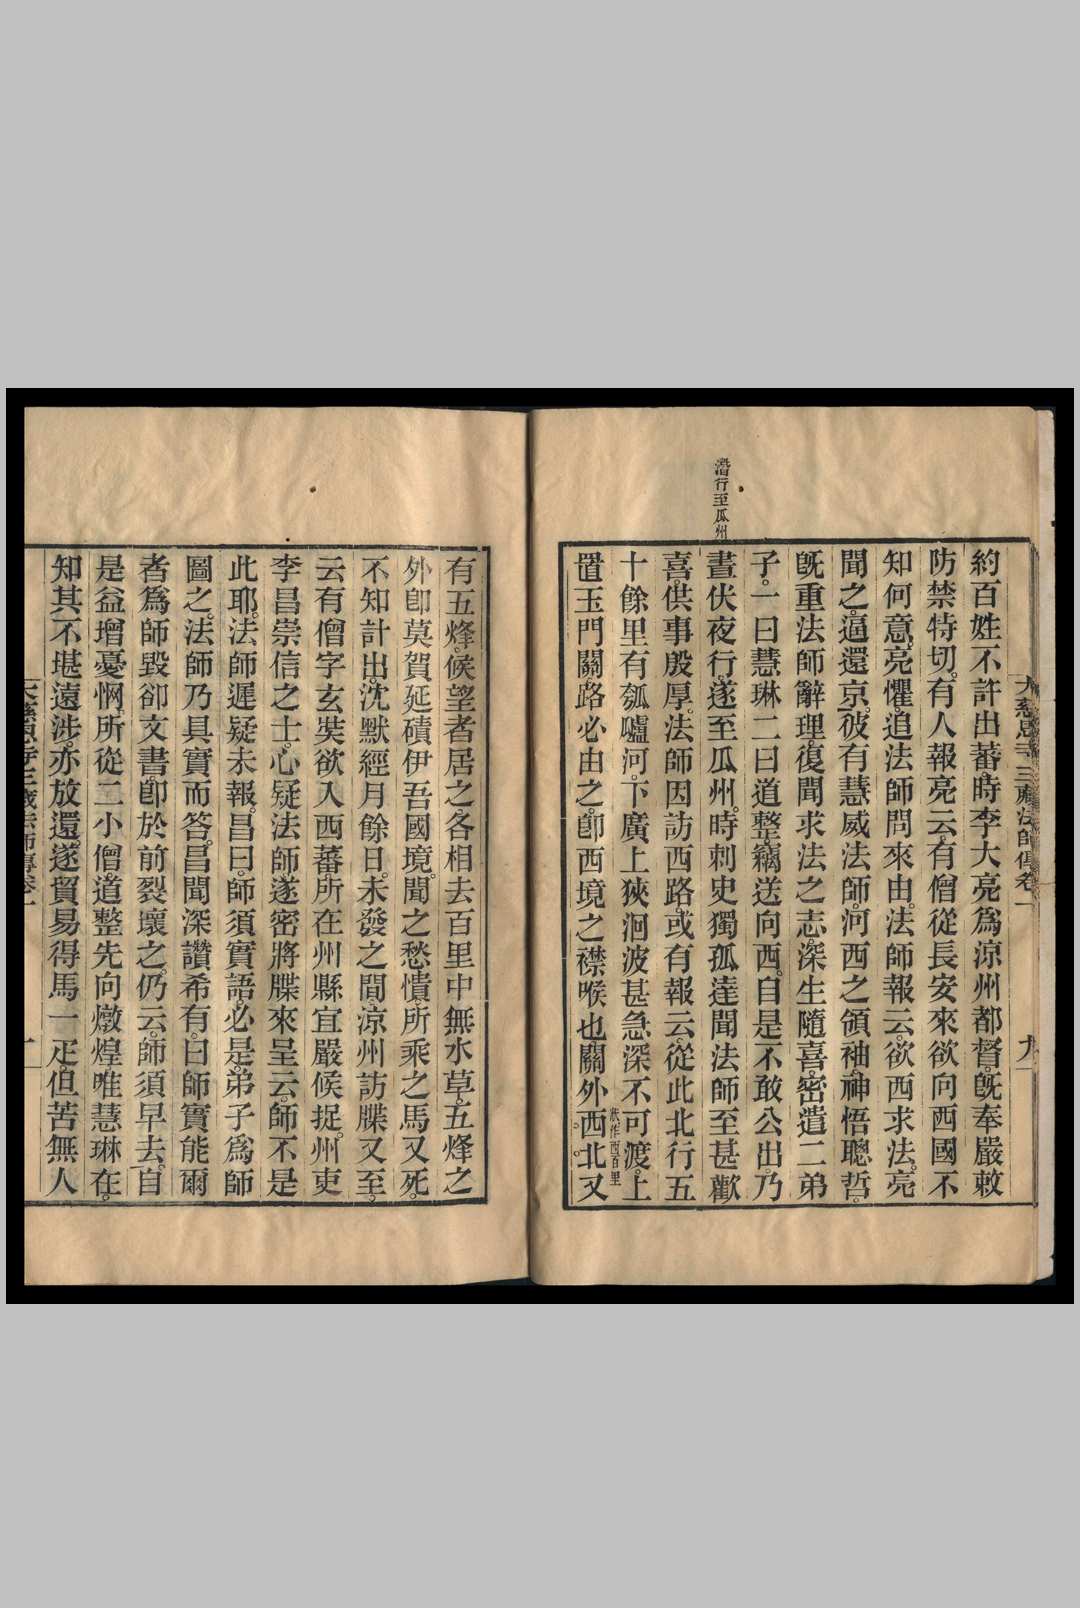 大慈恩寺三藏法師傳卷一
九
潛行至瓜州
約百姓不許出蕃。時李大亮爲涼州都督。旣奉嚴敕
防禁特切。有人報亮云。有僧從長安來欲向西國不
知何意。亮懼。追法師問來由。法師報云。欲西求法。亮
聞之。逼還京。彼有慧威法師。河西之領袖。神悟聰哲。
旣重法師辭理。復聞求法之志。深生隨喜。密遣二弟
子。一曰慧琳二曰道整。竊送向西。自是不敢公出。乃
晝伏夜行。遂至瓜州。時刺史獨孤達聞法師至甚歡
喜。供事殷厚。法師因訪西路。或有報云。從此北行五
十餘里有瓠𤬛河。下廣上狹洄波甚急深不可渡。上
置玉門關。路必由之。卽西境之襟喉也。關外西。北。又
有五烽。候望者居之各相去百里中無水草。五烽之
外卽莫賀延磧伊吾國境。聞之愁憒。所乘之馬又死。
不知計出。沈默經月餘日。未發之間。涼州訪牒又至。
云有僧字玄奘欲入西蕃。所在州縣宜嚴候捉。州吏
李昌崇信之士。心疑法師。遂密將牒來呈云。師不是
此耶。法師遲疑未報。昌曰。師須實語。必是。弟子爲師
圖之。法師乃具實而答。昌聞深讚希有。曰師實能爾
者爲師毀卻文書。卽於前裂壞之。仍云。師須早去。自
是益增憂惘。所從二小僧。道整先向燉煌。唯慧琳在。
知其不堪遠涉。亦放還。遂貿易得馬一疋。但苦無人